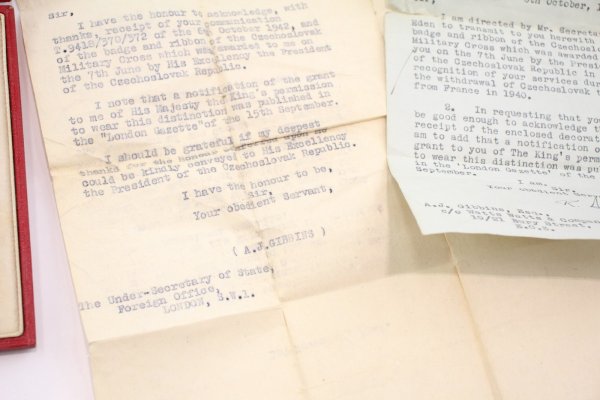 Sir,
I have the honour to acknowledge, with
thanks, receipt of your communication
T.9418/570/572 of the October 1942, and
of the badge and ribbon of the Czechoslovak
Military Cross which was awarded to me on
the 7th June by His Excellency the President
of the Czechoslovak Republic.
I note that a notification of the grant
to me of His Majesty the King's permission
to wear this distinction was published in
the "London Gazette" of the 15th September.
I should be grateful if my deepest
thanks for the honour conferred upon me
could be kindly conveyed to His Excellency
the President of the Czechoslovak Republic.
I have the honour to be,
Sir,
Your obedient Servant,
(A.J.GIBBINS)
The Under-Secretary of State,
Foreign Office,
LONDON, S.W.1.
October,
I am directed by Mr. Secreta
Eden to transmit to you herewith
badge and ribbon of the Czechoslo
Military Cross which was awarded
you on the 7th June by the Presid
of the Czechoslovak Republic in
recognition of your services duri
the withdrawal of Czechoslovak t
from France in 1940.
2. In requesting that yo
be good enough to acknowledge th
receipt of the enclosed decorat
am to add that a notification o
grant to you of The King's perm
to wear this distinction was pu
in the 'London Gazette' of the
September.
I am, Sir,
Your obedient Ser
A.J. Gibbins, Esq.,
c/o Watts Watts & Compan
Bury Street,
E.C.3.